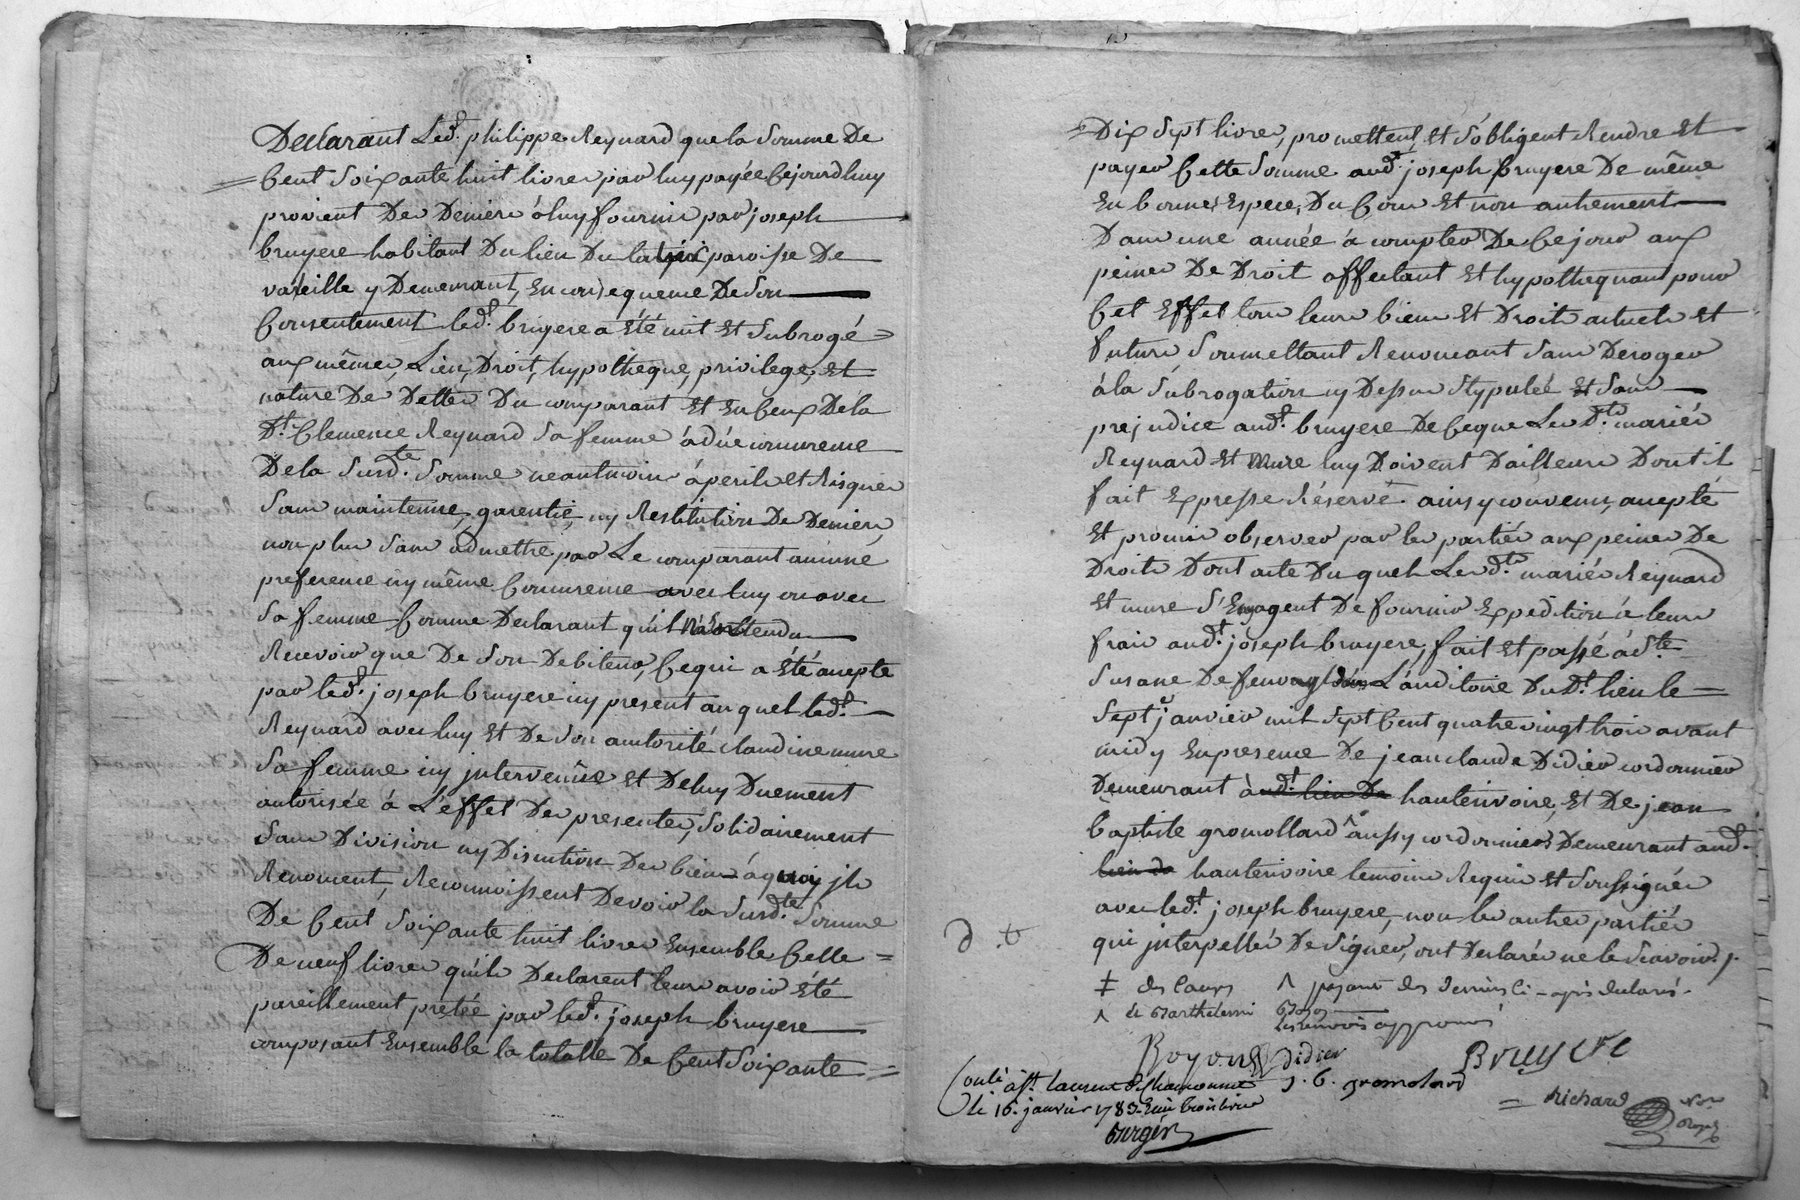 Declarant Led.t philippe Reynard que la Somme De
Cent Soixante huit livres par luy payée Cejourdhuy
provient Des Deniers à luy fournis par joseph
bruyere habitant Du lieu Du paroisse De
vareille y Demeurant, en consequence De Son
Consentement led.t briyere a été mit et Subrogé
aux mêmes Lieu, Droit, hypotheque, privilege, et
nature De Dettes Du comparant et en Ceux De la
D.t Clemence Reynard Sa femme à düe concurence
De la Susd.te Somme neantmoins à perils et Risques
Sans maintenue, garentie, ny Restitution De Deniers
non plus Sans admettre par Le comparant aucune
preference ny même Concurence avec luy ou avec
Sa femme Comme Declarant qu'il n'a Entendu
Recevoir que De Son Debiteur, Ce qui a été accepté
par led.t joseph bruyere icy present auquel led.t
Reynard avec luy et De Son autorité claudine mure
Sa femme icy intervenüe et De luy Duement
autorisée à L'effet Des presentes, Solidairement
Sans Division ny Discution De biens à quoy jls
Renoncent, Reconnoissent Devoir la Susd.te Somme
De Cent Soixante huit livres Ensemble Celle
De neuf livres qu'ils Declarent leurs avoir été
pareillement prêtée par led.t joseph bruyere
composant Ensemble la totalle De Cent Soixante
Dix Sept livres, promettent, et S'obligent Rendre et
payer Cette Somme aud.t joseph bruyere De même
En bonnes Especes, Du Cour et non autrement
Dans une année à compter De Ce jour aux
peines De Droit affectant et hypothequant pour
Cet Effet tous leurs biens et Droits actuels et
futurs Soumettant Renonceant Sans Deroger
à la Subrogation cy Dessus Stypulée et Sans
prejudice aud.t bruyere De Ceque Les D.ts mariés
Reynard et Mure luy Doivent D'ailleurs Dont il
fait Expresse Réservé ainsy convenu, accepté
et promis observer par les parties aux peines De
Droits Dont acte Du quel Les d.ts mariés Reynard
et mure S'Engagent De fournir Expedition à leurs
frais aud.t joseph bruyere, fait et passé à S.te
Susane De L'auditoire Dud.t lieu le
Sept janvier mil Sept Cent quatre vingt trois avant
midy En presence De jean claude Didier cordonnier
Demeurant à d.t lieu De hauterivoire, et De jean
baptiste gromollard ^ aussy cordonnier Demeurant aud.
lieu de hauterivoire temoins Requis et Soussignés
avec led.t joseph bruyere, non les autres parties
qui jnterpellés De Signer, ont Declarés ne le Scavoir ./.
‡ des Camps ^ payant des deniers ci-après declarés.
^ de Barthelemi
les renvois approuvés
Boyon Didier Bruyere
J. b. gromolard
Conlé à S.t laurent d Chamousset
le 16. janvier 1783.
Burgier
Richard no.re royal